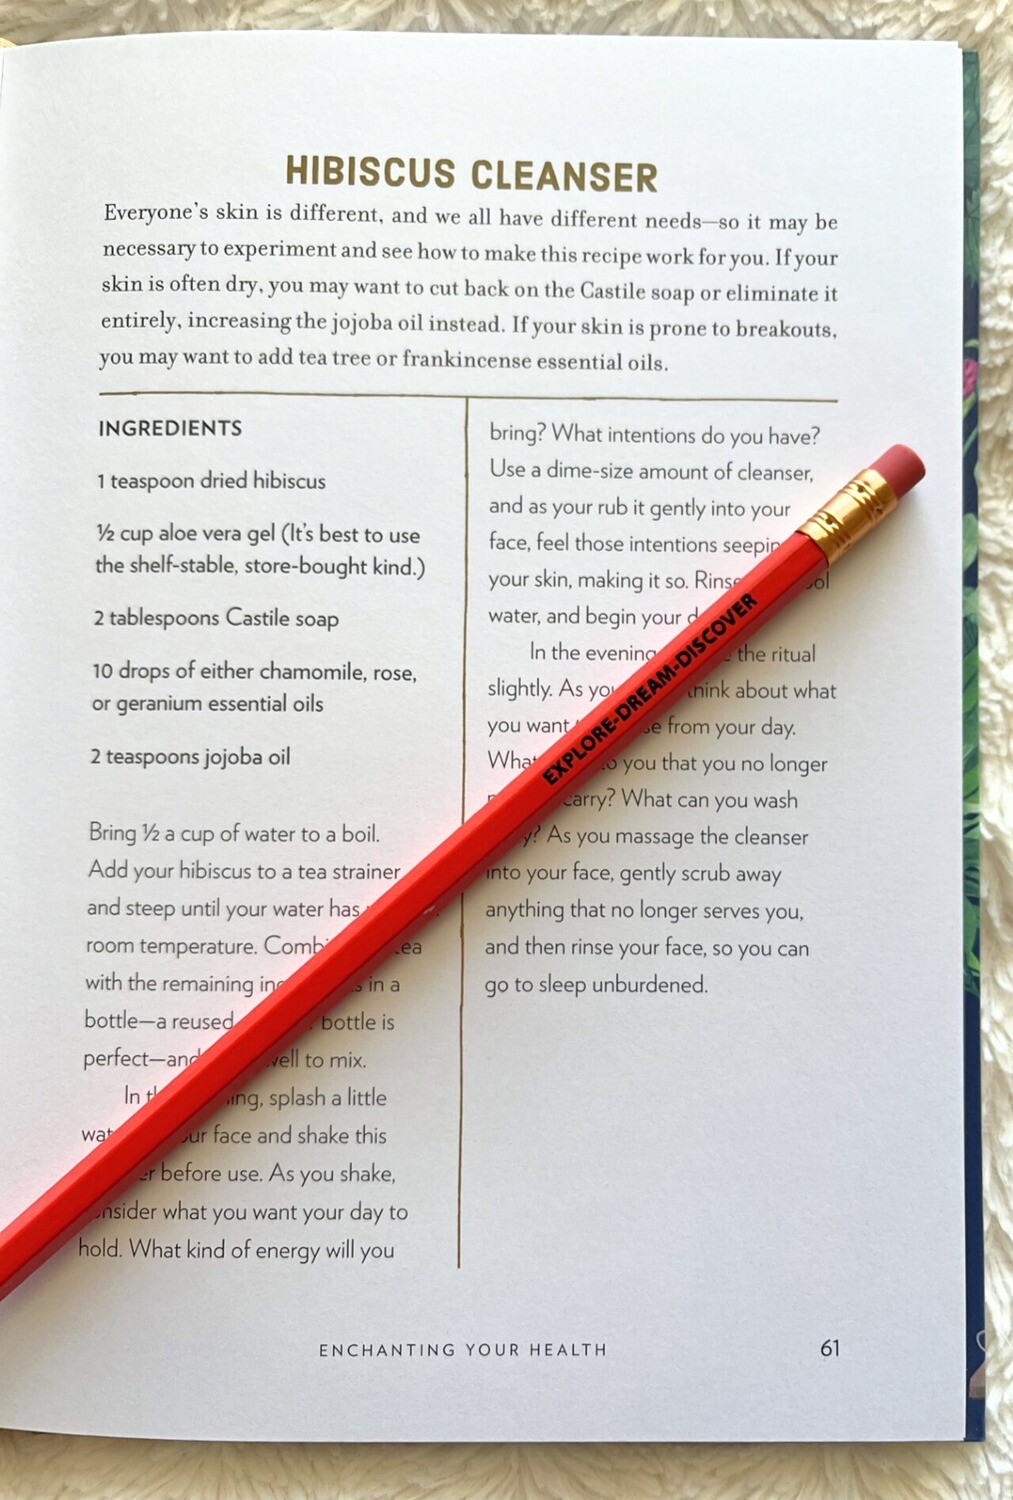 HIBISCUS CLEANSER
Everyone's skin is different, and we all have different needs—so it may be
necessary to experiment and see how to make this recipe work for you. If your
skin is often dry, you may want to cut back on the Castile soap or eliminate it
entirely, increasing the jojoba oil instead. If your skin is prone to breakouts,
you may want to add tea tree or frankincense essential oils.
INGREDIENTS
1 teaspoon dried hibiscus
½ cup aloe vera gel (It's best to use
the shelf-stable, store-bought kind.)
2 tablespoons Castile soap
10 drops of either chamomile, rose,
or geranium essential oils
2 teaspoons jojoba oil
Bring ½ a cup of water to a boil.
Add your hibiscus to a tea strainer
and steep until your water has
room temperature.
with the remaining in a
bottle—a reused bottle is
perfect—and well to mix.
In splash a little
face and shake this
before use. As you shake,
consider what you want your day to
hold. What kind of energy will you
bring? What intentions do you have?
Use a dime-size amount of cleanser,
and as your rub it gently into your
face, feel those intentions seeping
your skin, making it so. Rinse
water, and begin your
In the evening the ritual
slightly. As you think about what
you want from your day.
What to you that you no longer
carry? What can you wash
As you massage the cleanser
into your face, gently scrub away
anything that no longer serves you,
and then rinse your face, so you can
go to sleep unburdened.
EXPLORE-DREAM-DISCOVER
ENCHANTING YOUR HEALTH
61